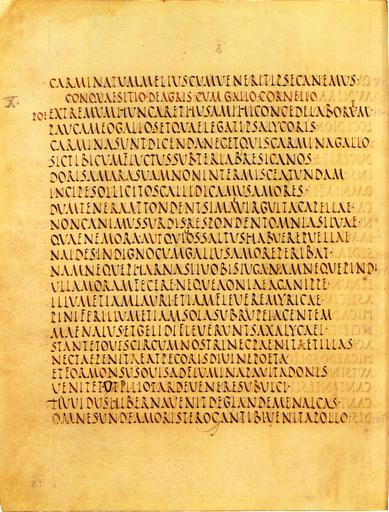 CARMINATUMMELIUSCUMUENERITIPSECANEMUS·
CONQUAESITIO·DEAGRIS·CUM GALLO·CORNELIO
POE EXTREMUMHUNCARETHUSAMIHICONCEDELABOREM·
PAUCAMEOGALLOSETQUAELEGATIPSALYCORIS·
CARMINASUNTDICENDANECETQUISCARMINAGALLO·
SICTIBICUMFLUCTUSSUBTERLABRESICANOS·
DORISAMARASUAMNONINTERMISCEATUNDAM·
INCIPESOLLICITOSGALLIDICAMUSAMORES·
DUMTENERAATTONDENTSIMAUIRGULTACAPELLAE·
NONCANIMUSSURDISRESPONDENTOMNIASILUAE·
QUAENEMORAAUTQUIOSSALTUSHABUEREPUELLAE·
NAIDESINDIGNOCUMGALLUSAMOREPERIBAT·
NAMNEQUEPHARNASIIUOBISIUGANAMNEQUEPINDI
ULLAMORAMFECERENEQUEAONIAEAGANIPPE·
ILLUMETIAMLAURIETIAMFLEUEREMYRICAE·
PINIFERILLUMETIAMSOLASUBRUPEIACENTEM
MAENALUSETGELIDIFLEUERUNTSAXALYCAEI·
STANTETOUESCIRCUMNOSTRINECPAENITAETILLAS·
NECTAEPENITAEATPECORISDIUINEPOETA·
ETFORMONSUSOUISADFLUMINAPAUITADONIS·
UENITETUPILIOTARDEUENERESUBULCI·
UUIDUSHIBERNAUENITDEGLANDEMENALCAS·
OMNESUNDEAMORISTEROGANTIBIUENITAPOLLO·